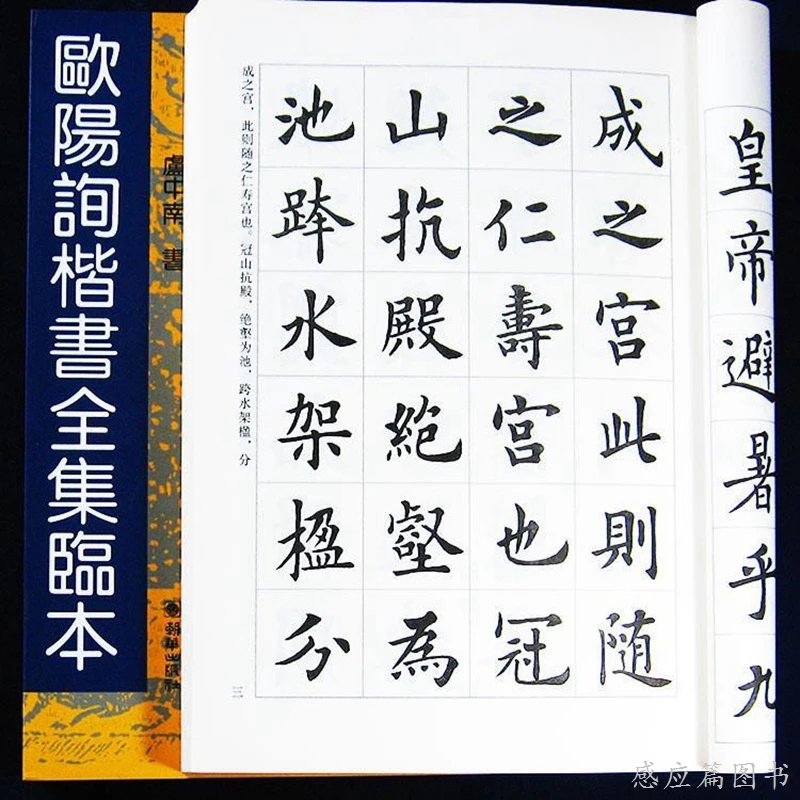 歐陽詢楷書全集臨本
盧中南 書
朝華出版社
皇帝避暑乎九
成之宫此則随
之仁壽宫也冠
山抗殿絶壑為
池跨水架楹分
成之宫，此则随之仁寿宫也。冠山抗殿，绝壑为池，跨水架楹，分
三
感应篇图书